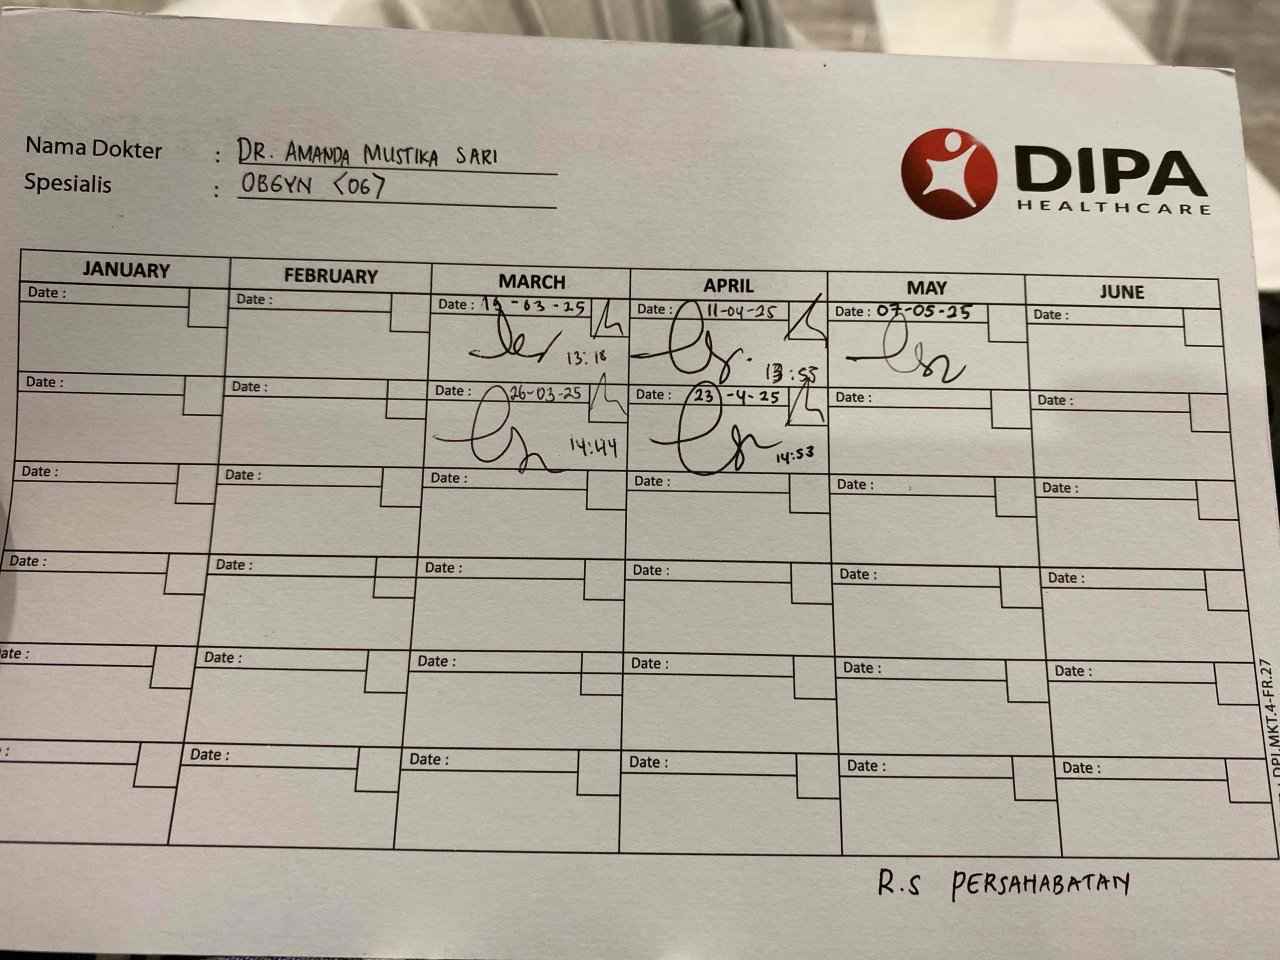 Nama Dokter : DR. AMANDA MUSTIKA SARI
Spesialis : OBGYN <OG>
DIPA
HEALTHCARE
JANUARY FEBRUARY MARCH APRIL MAY JUNE
Date : Date : Date : 19-03-25 Date : 11-04-25 Date : 07-05-25 Date :
13:18 13:55
Date : Date : Date : 26-03-25 Date : 23-4-25 Date : Date :
14:44 14:53
Date : Date : Date : Date : Date : Date :
Date : Date : Date : Date : Date : Date :
ate : Date : Date : Date : Date : Date :
: Date : Date : Date : Date : Date :
R.S PERSAHABATAN
DPI.MKT.4-FR.27